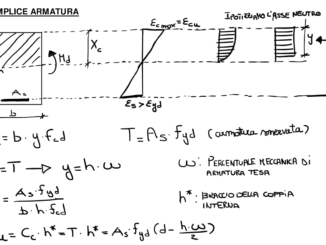 MPLICE ARMATURA
εcmax = εcu
IPOTIZZIAMO L'ASSE NEUTRO
Md
Xc
y
As
b
εs > εyd
= b · y · fcd
T = As · fyd (armatura snervata)
= T → y = h · ω
ω: PERCENTUALE MECCANICA DI
ARMATURA TESA
= As · fyd
b · h · fcd
h*: BRACCIO DELLA COPPIA
INTERNA
= Cc · h* = T · h* = As · fyd (d - h·ω/2)